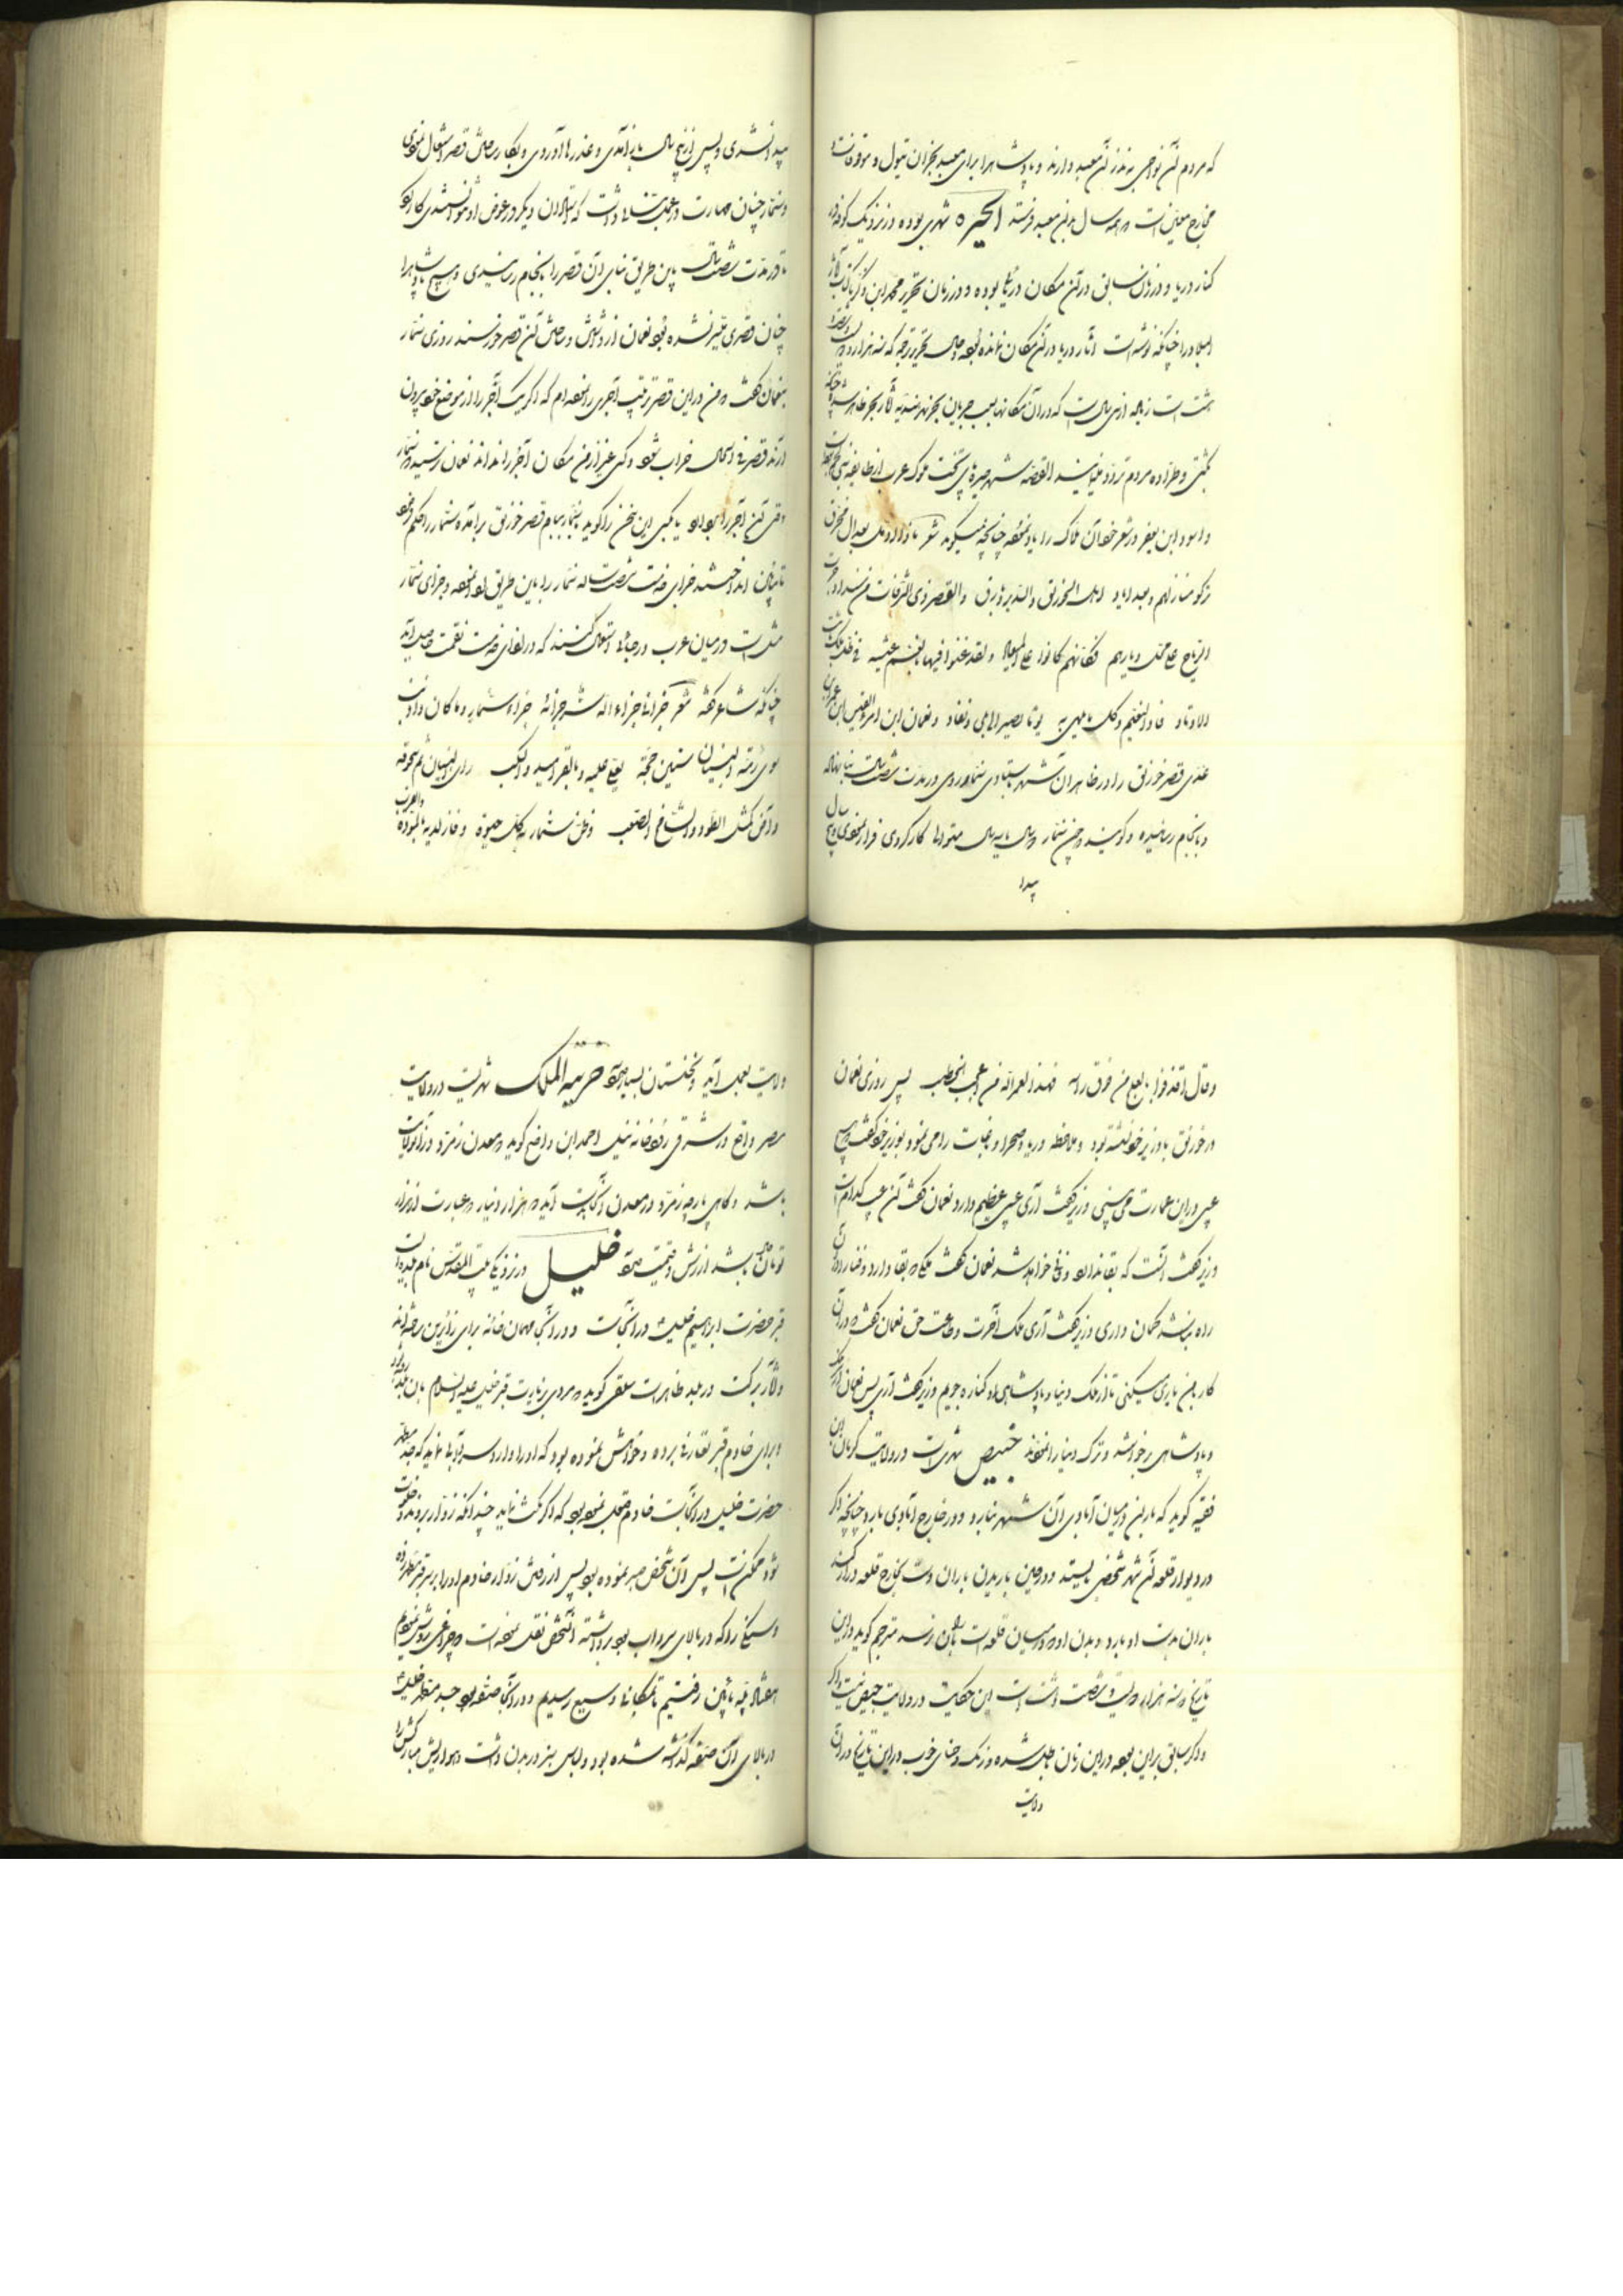 که مردم آن نواحی به نذر آن معبد دارند و پادشاهرا برای معبد نجران تیول و موقوفات
مخارج معین است و همه سال به آن معبد فرستد الحیره شهری بوده در نزدیک کوفه در
کنار دریا و در زمان سابق در آن مکان دریا بوده و در زمان تحریر محمد ابن ذکریا کتاب آثار
البلاد را چنانکه نوشته است آثار دریا در آن مکان نمانده بوده و حال تحریر ترجمه که سنه هزار و
هشت است زیاده از سی سال است که در آن مکانها بسبب جریان بحر هندیه آثار بحر ظاهر شده چنانکه
کشتی و طراده مردم تردد مینمایند القصه شهر حیره پای تخت ملوک عرب از طایفه بنی لخم
و اسود ابن یعفر در شعر خود آن ملوک را یاد نموده چنانچه میگوید شعر ماذا اؤمل بعد آل محرق
ترکوا منازلهم و بعد ایاد اهل الخورنق والسدیر و بارق والقصر ذی الشرفات من سنداد جرت
الریاح علی محل دیارهم فکانهم کانوا علی المیعاد ولقد غنوا فیها بانعم عیشة فی ظل ملک ثابت
الاوتاد فاذا النعیم وکل ما یلهی به یوما یصیر الی بلی ونفاد و نعمان ابن امرؤ القیس ابن عمرو ابن
عدی قصر خورنق را در ظاهر آن شهر باستادی سنمار رومی در مدت شصت سال بنا نهاده
و بانجام رسانیده و گویند چون سنمار دو سال یا سه سال متوالیا کار کردی فرار نمودی و پنج سال
پیدا
پیدا نشدی و پس از پنج سال باز آمدی و عذرها آوردی و بکار ساختن قصر اشتغال نمودی
و سنمار چنان مهارت در عمل بنائی داشت که استادان دیگر در عوض او نتوانستندی کار کرد
تا در مدت شصت سال باین طریق بنای آن قصر را بانجام رسانیدی و هیچ پادشاهرا
چنان قصری میسر نشده بود نعمان از دیدن و ساختن آن قصر خورسند روزی سنمار
بنعمان گفت من در این قصر ترتیب آجری را نموده ام که اگر یک آجر را از موضع خود بیرون
آرند قصر فی الحال خراب شود و کسی غیر از من مکان آجر را نداند نعمان ترسید که سنمار
وقتی آن آجر را بردارد یا بکسی این سخن را گوید با سنمار ببام قصر خورنق برآمده سنمار را حکم نموده
تا بپائین انداختند جزای خدمت شصت ساله سنمار را باین طریق ادا نموده و جزای سنمار
مثل است در میان عرب در جائی استعمال کنند که در ازای خدمت نقمت حاصل آید
چنانکه شاعر گفته شعر جزانی جزاه الله شر جزائه جزاء سنمار وما کان ذا ذنب
سوی رمّه البنیان ستین حجة یعلی علیه بالقرامید والسکب رأی البنیان تم سحوقه
وآض کمثل الطود والشامخ الصعب وظن سنمار به کل حبوة وفاز لدیه بالمودة والقرب
وقال اقذفوا بالعلج من فوق رأسه فهذا لعمر الله من اعجب الخطب پس روزی نعمان
در خورنق با وزیر خود نشسته بود و ملاحظه دریا و صحرا و نباتات را می نمود بوزیر خود گفت هیچ
عیبی در این عمارت می بینی وزیر گفت آری عیبی عظیم دارد نعمان گفت آن عیب کدام است
وزیر گفت آنست که بقا ندارد و فانی خواهد شد نعمان گفت ملکی که بقا دارد و فنا را در آن
راه نباشد گمان داری وزیر گفت آری ملک آخرت و طاعت حق نعمان گفت در آن
کار بمن یاری میکنی تا از ملک دنیا و پادشاهی او کناره جویم وزیر گفت آری پس نعمان از ملک
و پادشاهی برخواسته و ترک دنیا را نمودند خبیص شهری است در ولایت کرمان ابن
فقیه گوید که باران در میان آبادی آن شهر نبارد و در خارج آبادی بارد چنانچه اگر
در دیوار قلعه آن شهر شخصی بایستد و در حین باریدن باران دست بخارج قلعه دراز کند
باران بدست او بارد و بدن او که در میان قلعه است باران نرسد مترجم گوید در این
تاریخ که سنه هزار و دویست و شصت و هشت است این حکایت در ولایت خبیص نیست اگر
در ذکر سابق بر این بوده در این زمان باطل شده و رنگ و حنای خوب در این تاریخ در آن
ولایت
ولایت بعمل آید و نخلستان بسیار دارد خربة الملک شهریست در ولایت
مصر واقع در شرقی رودخانه نیل احمد ابن واضح گوید که معدن زمرد در آن ولایت
باشد و گاهی پارچه زمرد در معدن آنجا بدست آید که هزار دینار که عبارت از هزار
تومان باشد ارزش و قیمت دارد خلیل در نزدیکی بیت المقدس نام بلدی است
قبر حضرت ابراهیم خلیل در آنجاست و در آنجا مهمان خانه برای زائرین ساخته اند
و آثار برکت در بلد ظاهر است سلفی گوید که مردی بزیارت قبر خلیل علیه السلام بآن بلد
و برای خادم قبر تعارفی برده و خواهش نموده بود که او را وارد سردابی نماید که جسد مطهر
حضرت خلیل در آنجاست خادم قبول نموده بود که اگر مکث نماید چندانکه زوار بروند و خلوت
شود ممکن است پس آن شخص صبر نموده بود پس از رفتن زوار خادم او را بر سر قبر برده
و سنگی را که در بالای سرداب بود برداشته آنشخص نقل نموده است که چراغی روشن نمودیم
هفتاد پله پائین رفتیم تا بمکانی وسیع رسیدیم و در آنجا صفه بود جسد مطهر خلیل
در بالای آن صفه گذاشته شده بود و لباس سبز در بدن داشت و هوا ریش مبارکش را